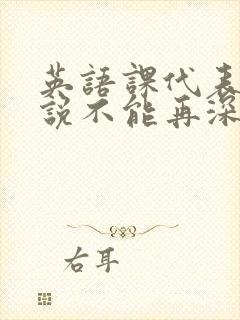 英語課代表
説不能再深
右耳